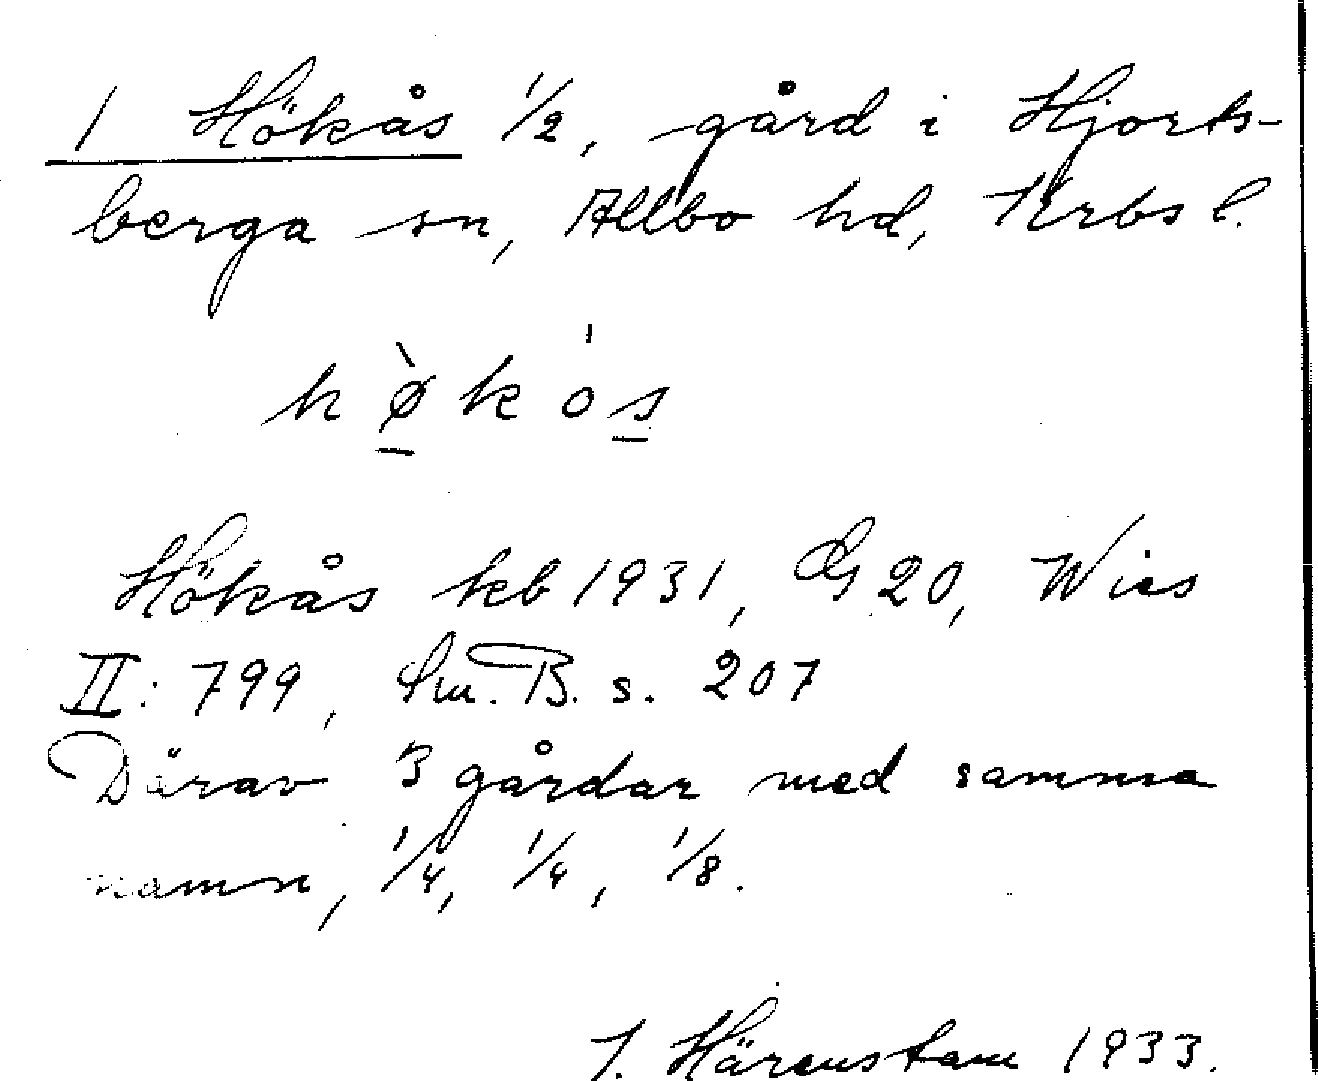 1 Hökås 1/2, gård i Hjorts-
berga sn, Allbo hd, Krbs l.
hø̀kós
Hökås kb 1931, G 20, Wies
II: 799, Sm. B. s. 207
Därav 3 gårdar med samma
namn, 1/4, 1/4, 1/8.
J. Härenstam 1933.